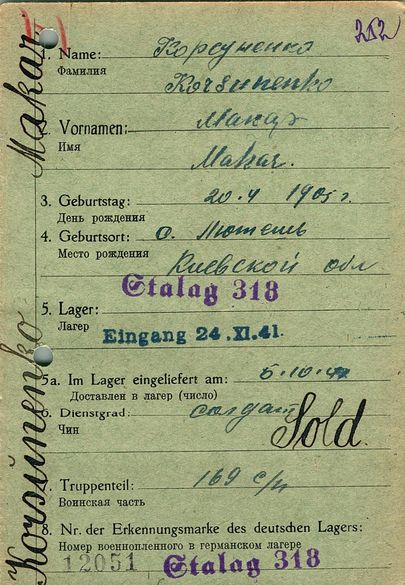 252
1. Name: Корсуненко
Фамилия
Korsunenko
2. Vornamen: Макар
Имя
Makar.
3. Geburtstag: 20.4 1905 г.
День рождения
4. Geburtsort: с. Лютень
Место рождения
Киевской обл
Stalag 318
5. Lager:
Лагерь
Eingang 24.XI.41.
5a. Im Lager eingeliefert am: 5.10.
Доставлен в лагер (число)
6. Dienstgrad: солдат
Чин
Sold.
7. Truppenteil: 169 с/п
Воинская часть
8. Nr. der Erkennungsmarke des deutschen Lagers:
Номер военнопленного в германском лагере
12051 Stalag 318
Korsunenko Makar